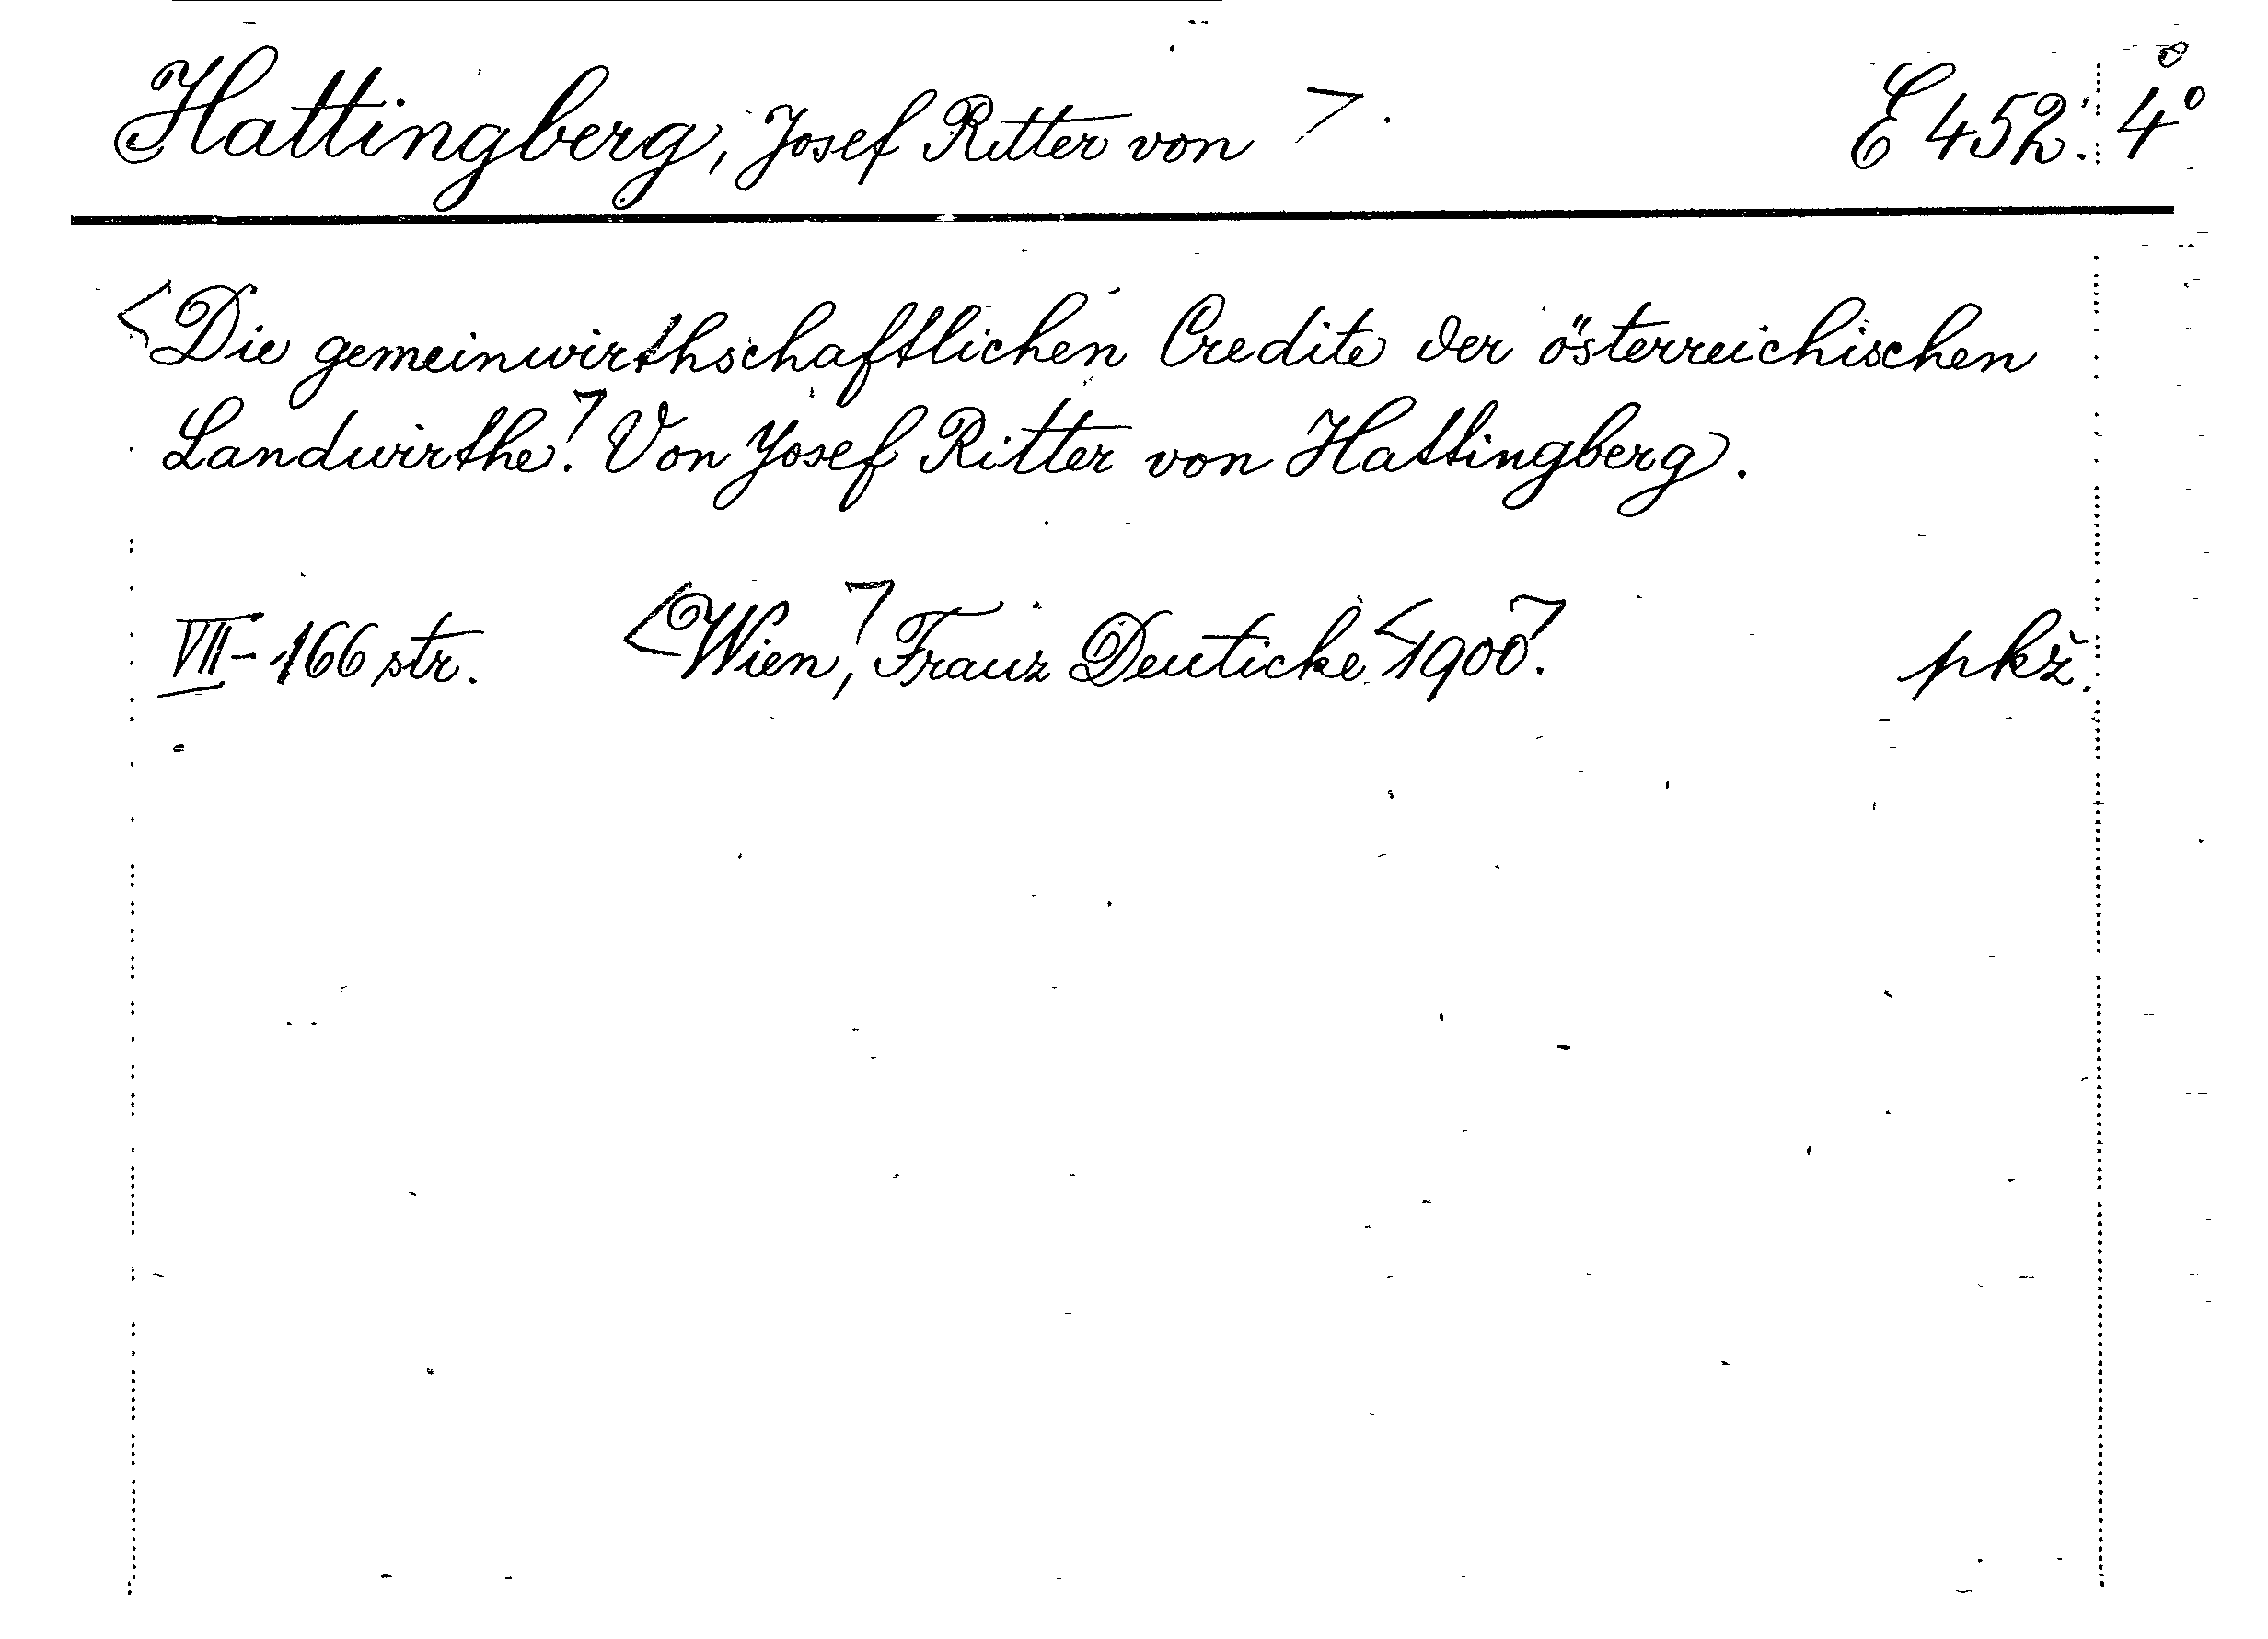 Hattingberg, Josef Ritter von >. E 452. 4°
<Die gemeinwirthschaftlichen Credite der österreichischen
Landwirthe.> Von Josef Ritter von Hattingberg.
VII-166 str. <Wien,> Franz Deuticke <1900.> pkž.